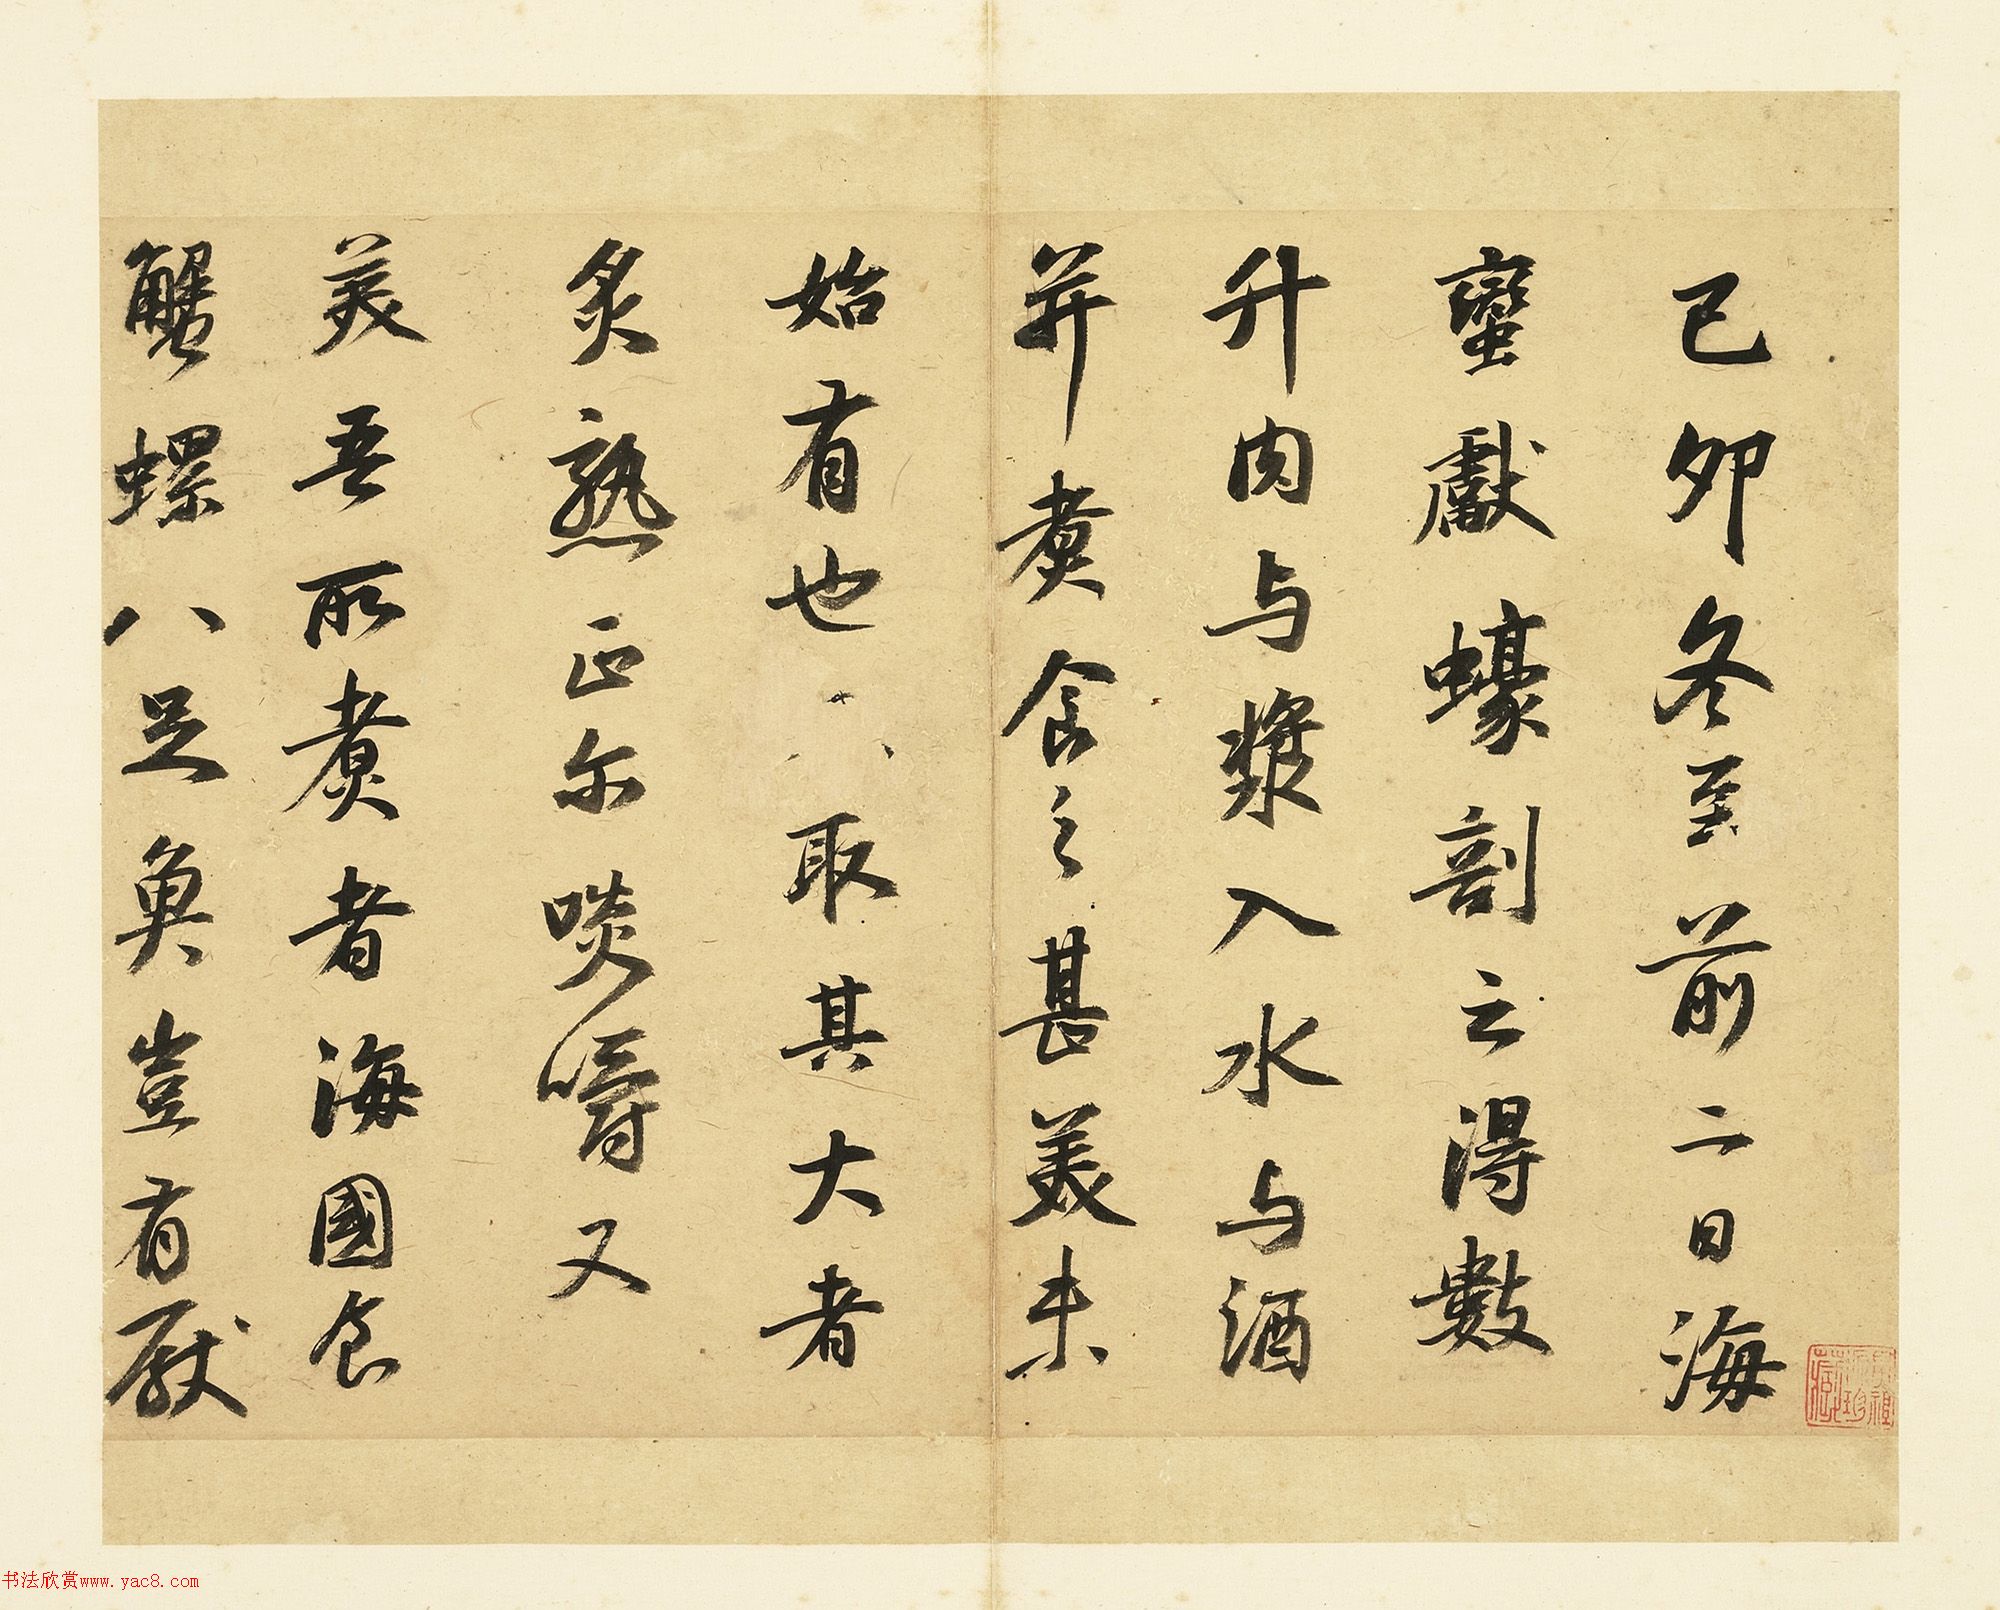 己卯冬至前二日海
蠻獻蠔剖之得數
升肉与漿入水与酒
并煮食之甚美未
始有也 取其大者
炙熟正尔啖嚼又
美吾所煮者海國食
蟹螺八足魚豈有厭
书法欣赏www.yac8.com